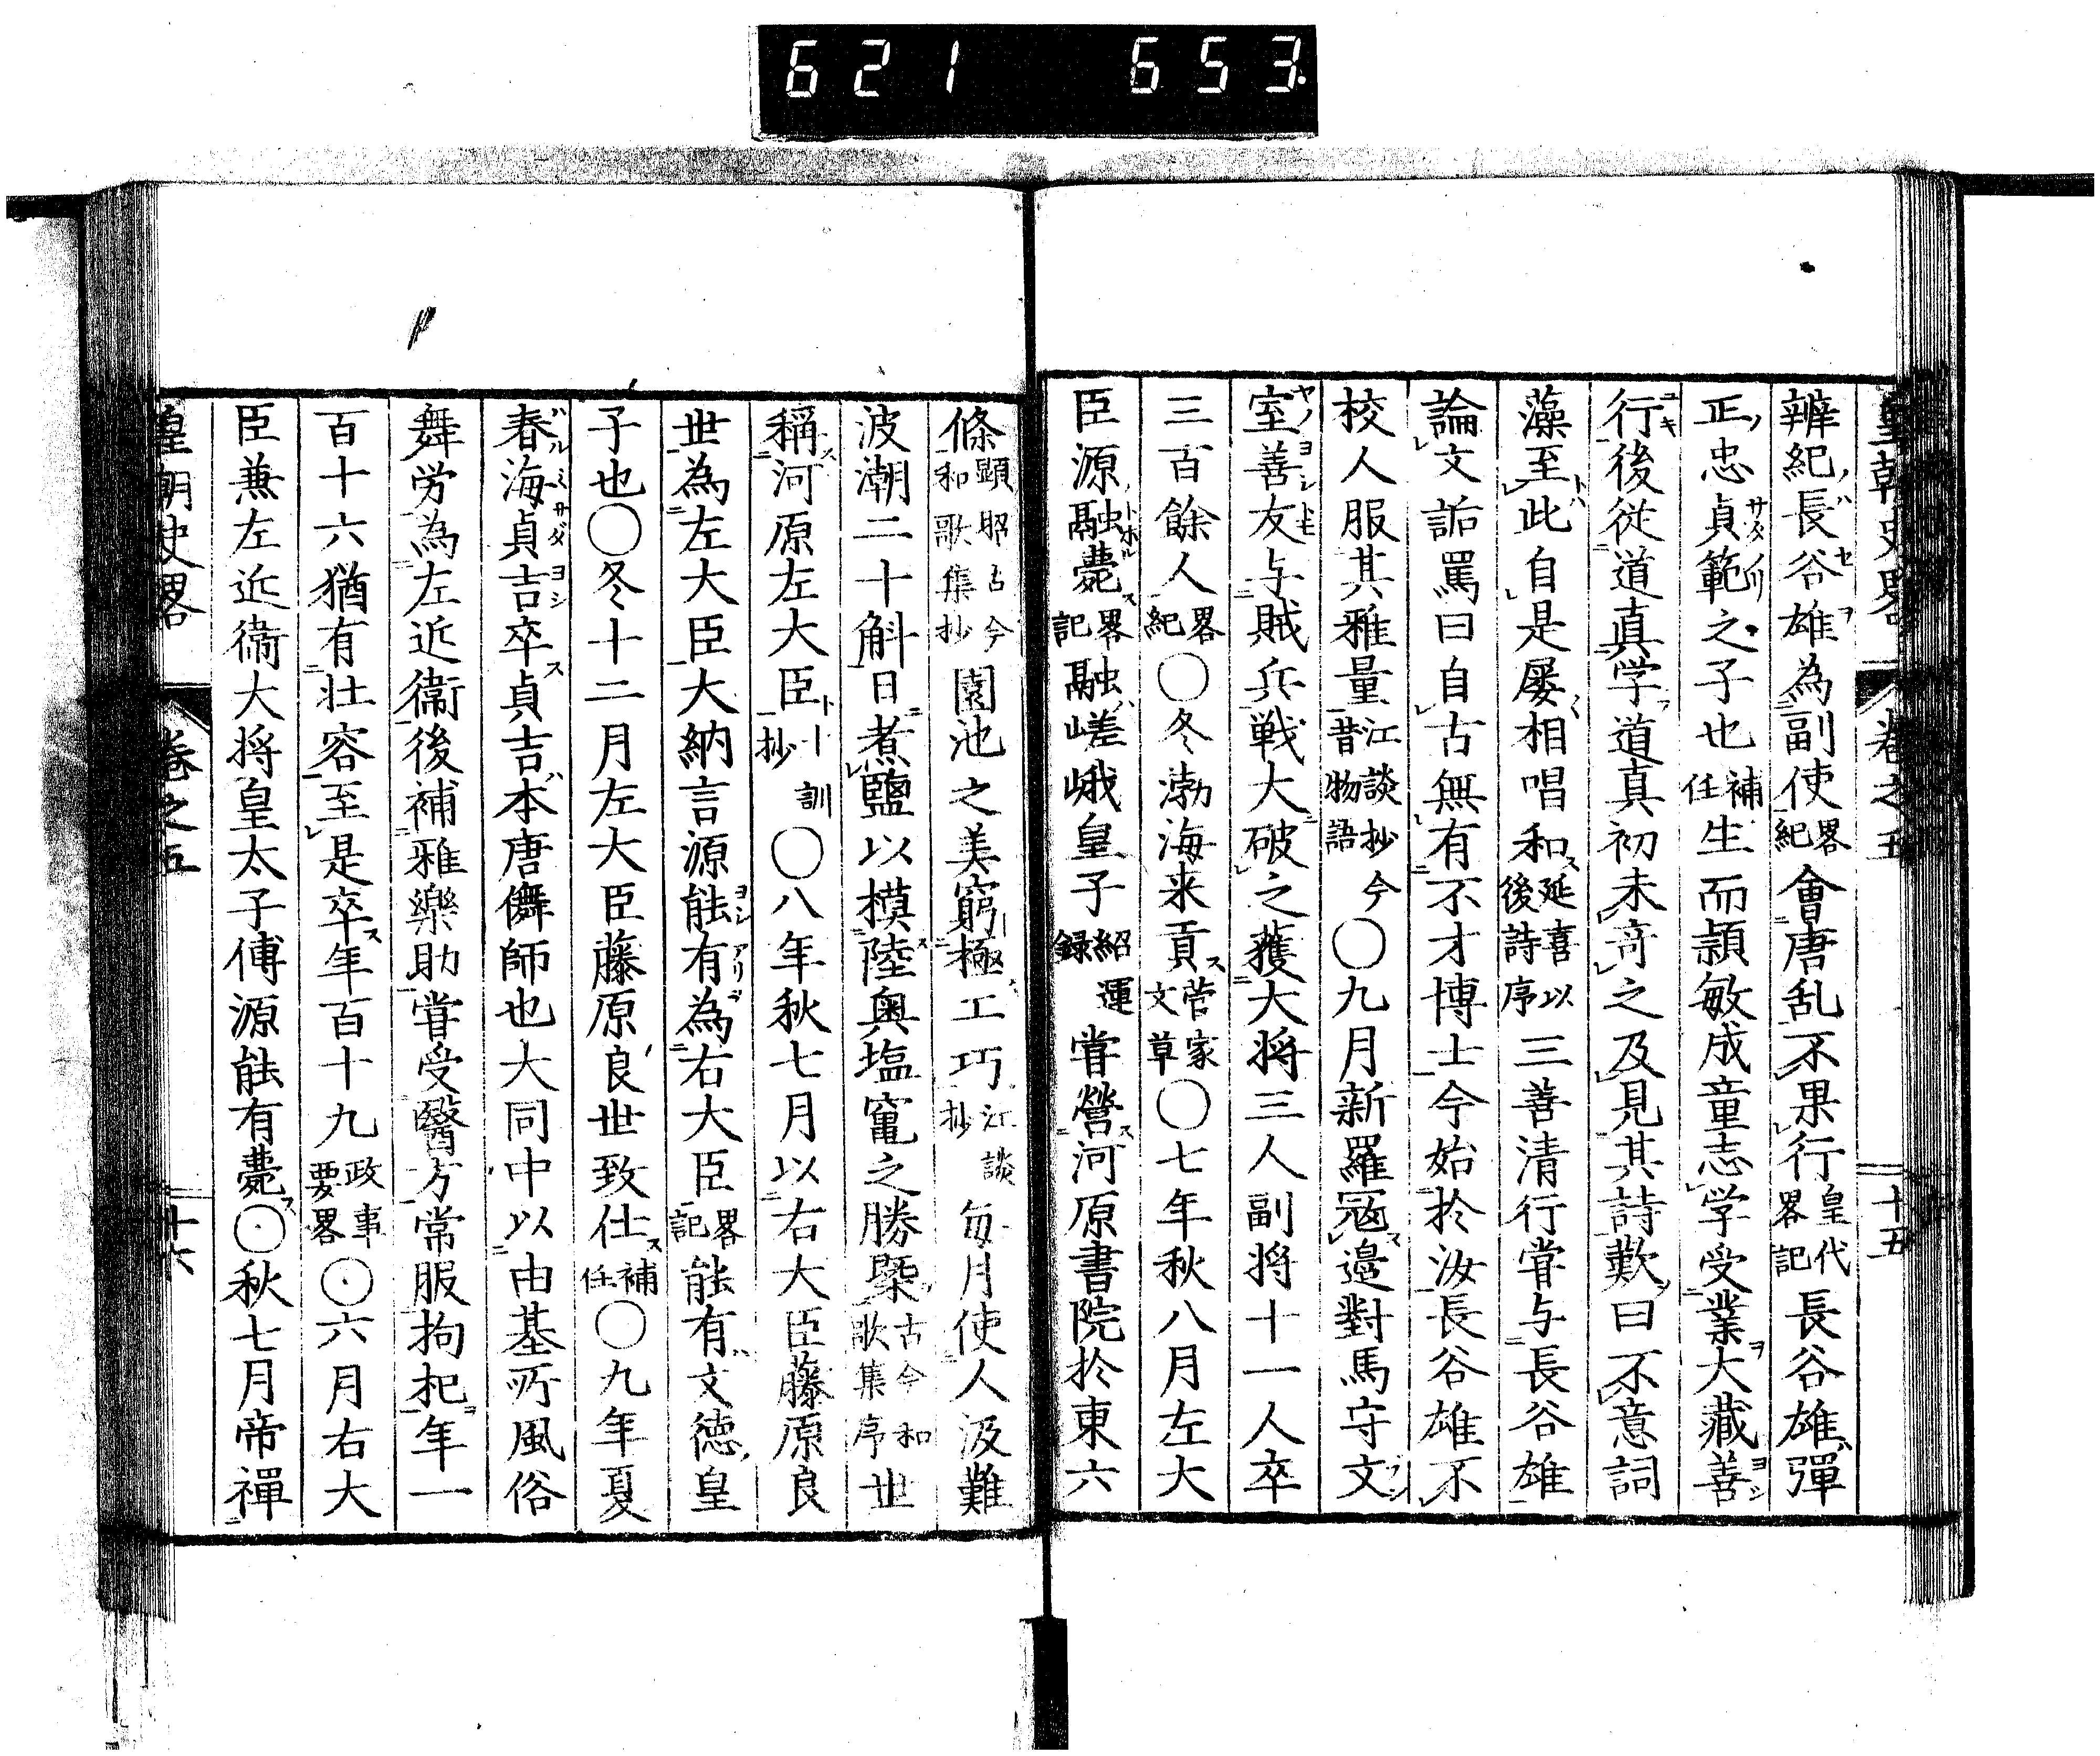 621 653
皇朝史畧 卷之五 十五
辨紀長谷雄為副使畧紀會唐乱不果行皇代畧記長谷雄彈
正忠貞範之子也補任生而頴敏成童志学受業大藏善
行後従道真学道真初未竒之及見其詩歎曰不意詞
藻至此自是屡相唱和延喜以後詩序三善清行甞与長谷雄
論文詬罵曰自古無有不才博士今始於汝長谷雄不
校人服其雅量江談抄今昔物語〇九月新羅冦邉對馬守文
室善友与賊兵戦大破之獲大将三人副将十一人卒
三百餘人畧紀〇冬渤海来貢菅家文草〇七年秋八月左大
臣源融薨畧記融嵯峨皇子紹運録甞營河原書院於東六
條顕昭古今和歌集抄園池之美窮極工巧江談抄每月使人汲難
波潮二十斛日煮鹽以模陸奥塩竃之勝槩古今和歌集序世
稱河原左大臣十訓抄〇八年秋七月以右大臣藤原良
世為左大臣大納言源能有為右大臣畧記能有文徳皇
子也〇冬十二月左大臣藤原良世致仕補任〇九年夏
春海貞吉卒貞吉本唐儛師也大同中以由基所風俗
舞労為左近衞後補雅樂助甞受醫方常服拘杞年一
百十六猶有壮容至是卒年百十九政事要畧〇六月右大
臣兼左近衞大将皇太子傅源能有薨〇秋七月帝禪
皇朝史畧 卷之五 十六